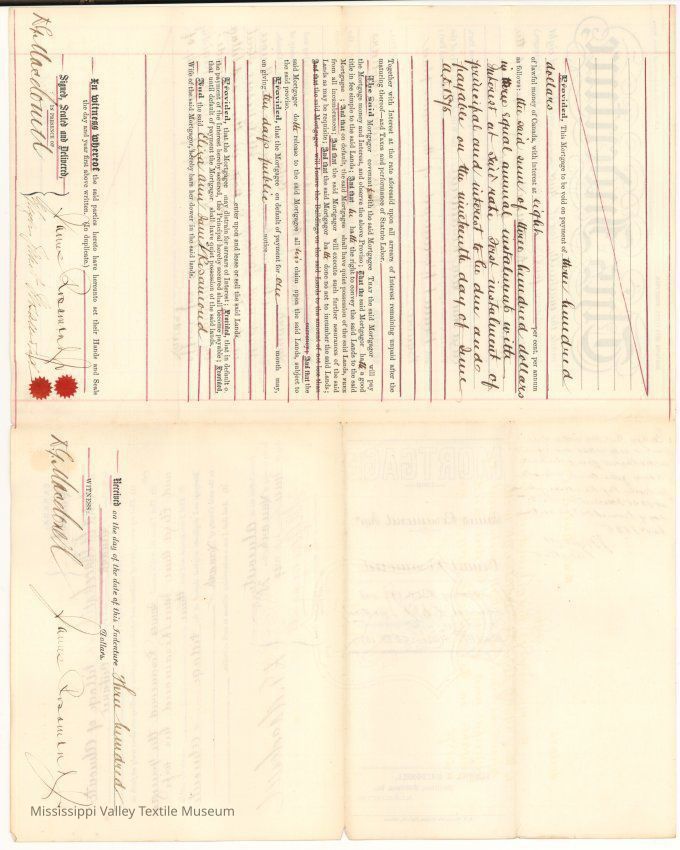 Provided, This Mortgage to be void on payment of three hundred
dollars
of lawful money of Canada, with interest at eight per cent. per annum
as follows: the said sum of three hundred dollars
in three equal annual instalments with
interest at said rate. First instalment of
principal and interest to be due and
payable on the nineteenth day of June
A.D.
Together with Interest at the rate aforesaid upon all arrears of Interest remaining unpaid after the
maturing thereof—and Taxes and performance of Statute Labor.
The Said Mortgagor covenants with the said Mortgagee THAT the said Mortgagor will pay
the Mortgage money and Interest, and observe the above Proviso; That the said Mortgagor hath a good
title in fee simple to the said Lands; And that he hath the right to convey the said Lands to the said
Mortgagee; And that on default, the said Mortgagee shall have quiet possession of the said Lands,
from all incumbrances; And that the said Mortgagor will execute such further assurances of the said
Lands as may be requisite; And that the said Mortgagor hath done no act to incumber the said Lands;
And that the said Mortgagor will insure the Buildings on the said Lands to the amount of not less than
currency; And that the
said Mortgagor doth release to the said Mortgagee all his claim upon the said Lands, subject to
the said proviso.
Provided, that the Mortgagee on default of payment for one month may,
on giving ten days public notice
enter upon and lease or sell the said Lands.
Provided, that the Mortgagee may distrain for arrears of Interest; Provided, that in default of
the payment of the Interest hereby secured, the Principal hereby secured shall become payable; Provided,
that until default of payment the Mortgagor shall have quiet possession of the said lands.
And the said Eliza Ann Jane Rosamond
Wife of the said Mortgagor, hereby bars her dower in the said lands.
In Witness Whereof the said parties hereto have hereunto set their Hands and Seals
the day and year first above written. (In duplicate.)
Signed, Sealed and Delivered
IN PRESENCE OF
James Rosamond
Macdonell
Received on the day of the date of this Indenture Three hundred
Dollars.
WITNESS:
Macdonell
James Rosamond
Mississippi Valley Textile Museum